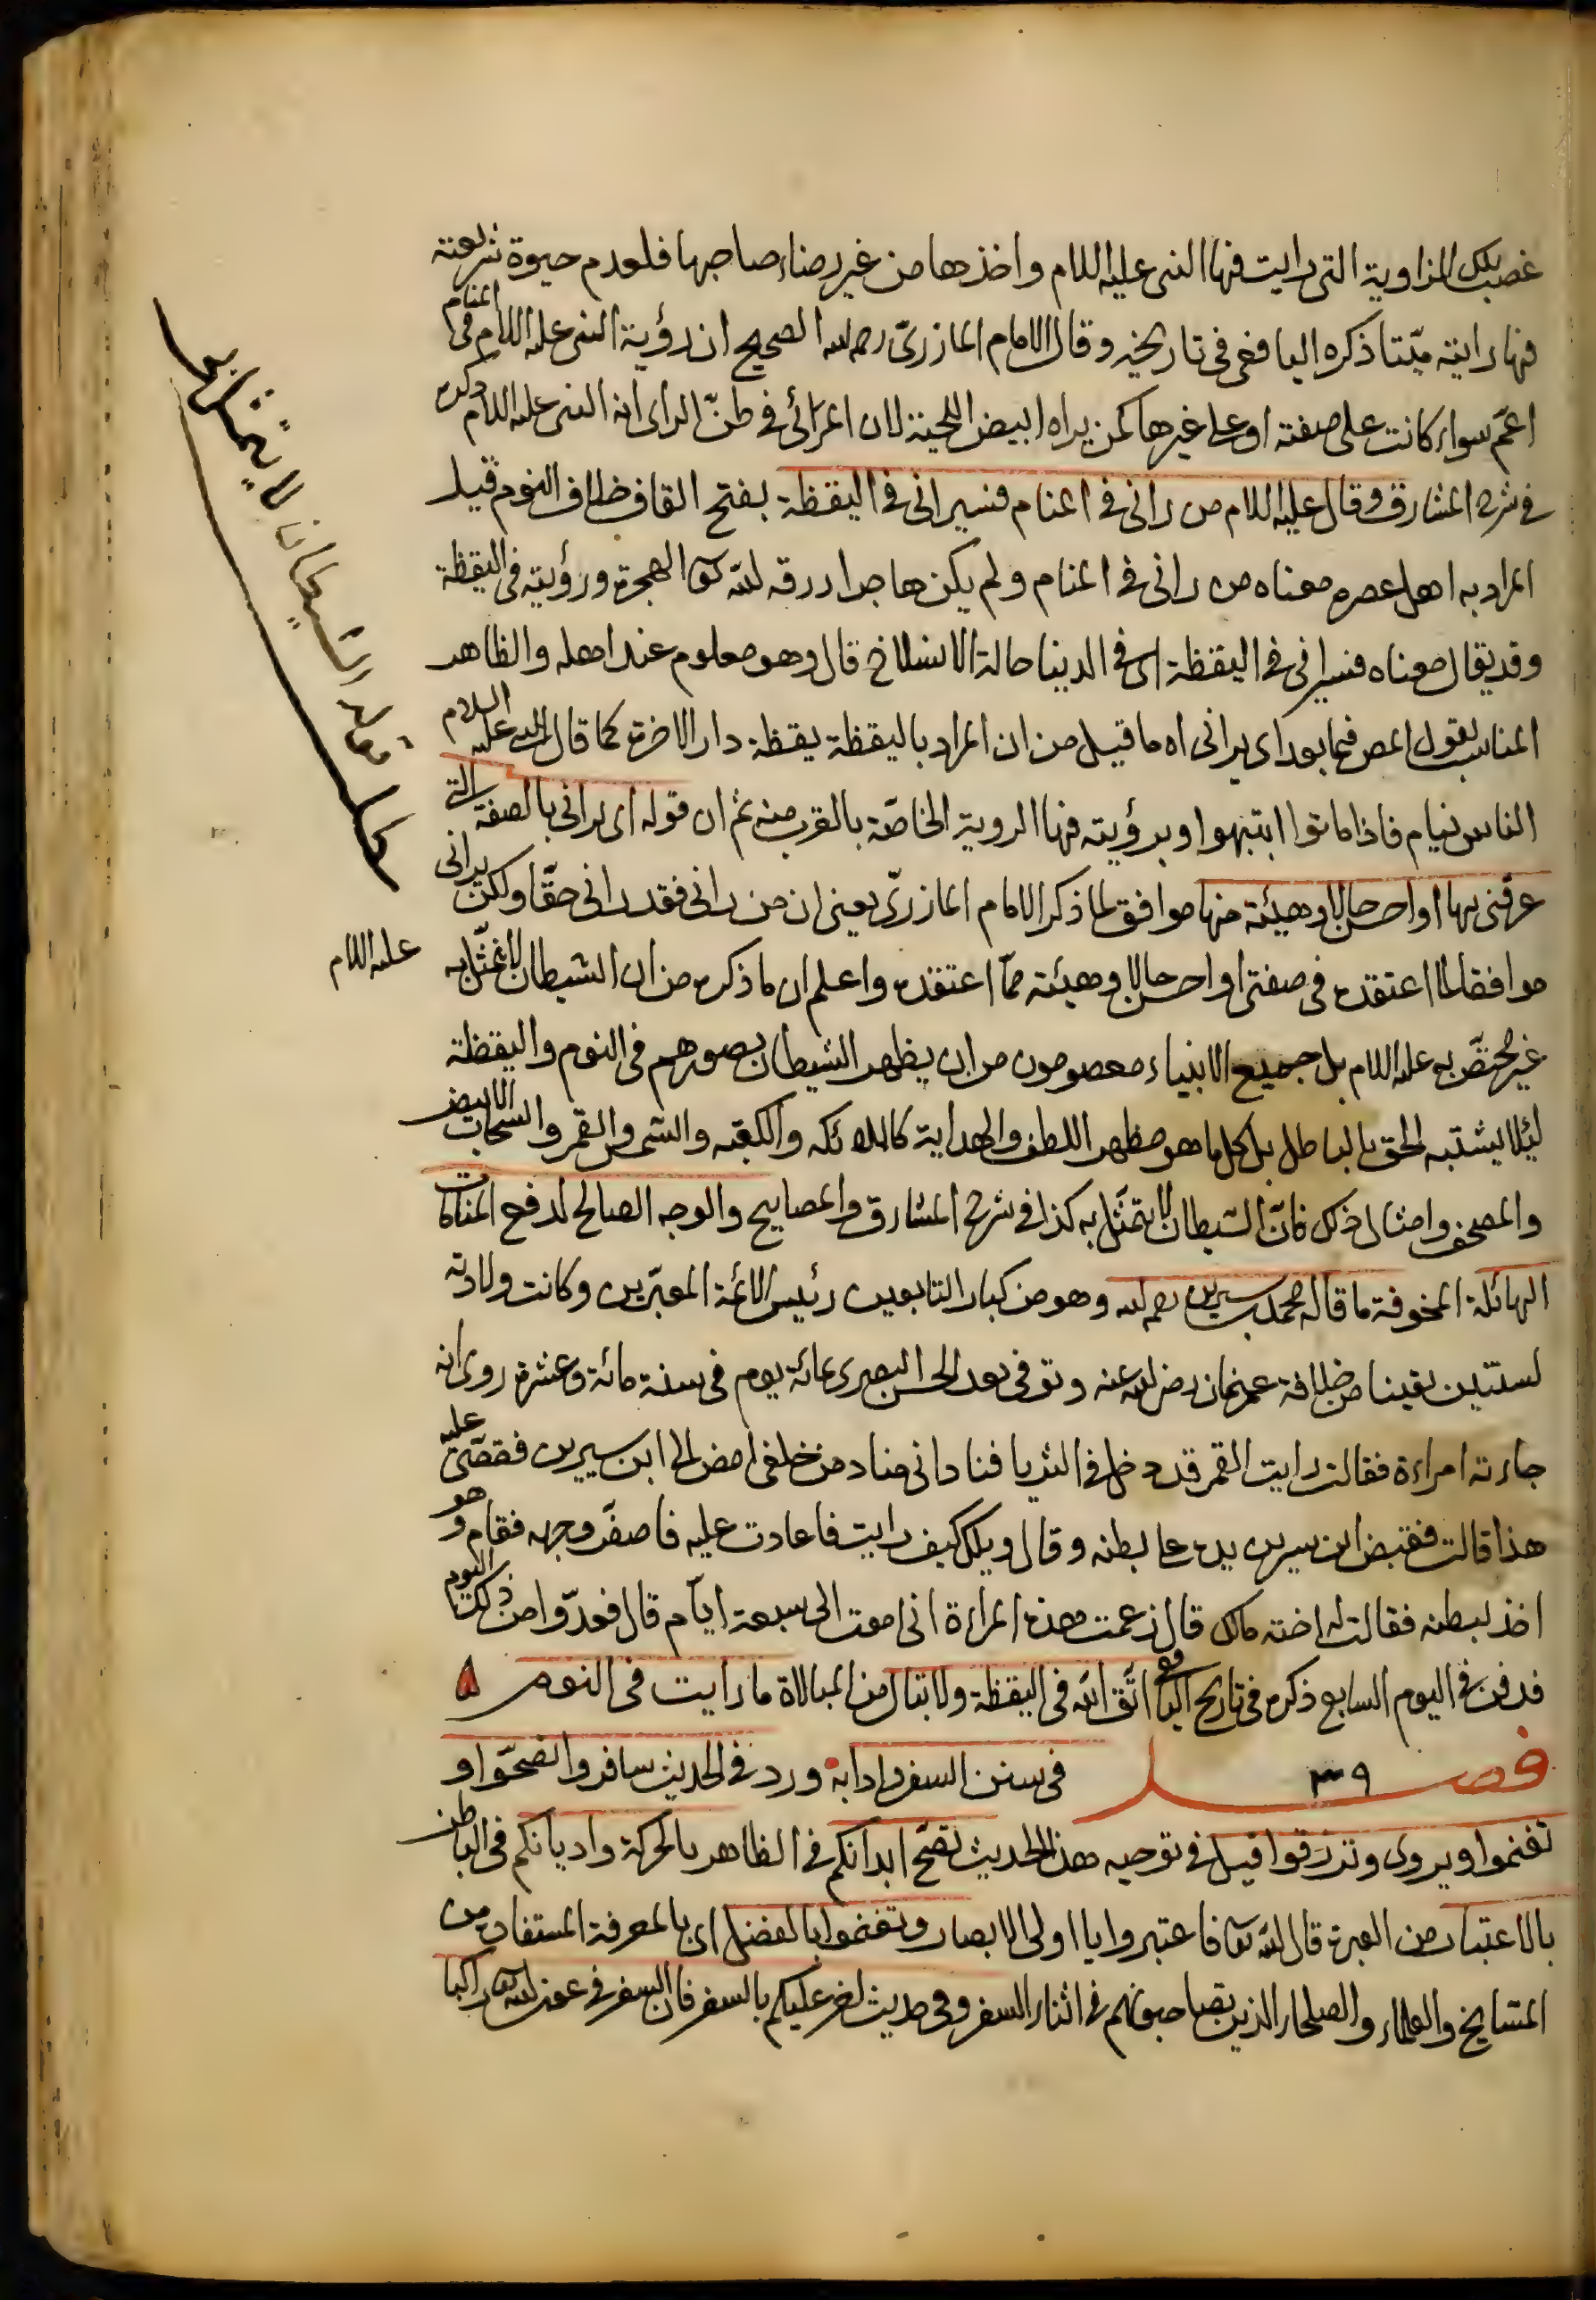 غصب تلك الزاوية التى رايت فيها النبى عليه اللام واخذها من غير رضاء صاحبها فلعدم حيوة شريعته
فيها رايته ميّتا ذكره اليافعى فى تاريخه وقال الامام المازرىّ رحمه الله الصحيح ان رؤية النبى عليه اللام فى المنام
اعمّ سواء كانت على صفته او على غيرها كمن يراه ابيض اللحية لان المرائى فى ظنّ الراى انه النبى عليه اللام ذكره
فى شرح المشارق وقال عليه اللام من رانى فى المنام فسيرانى فى اليقظة بفتح القاف خلاف النوم قيل
المراد به اهل عصره معناه من رانى فى المنام ولم يكن هاجر رزقه الله تعا الهجرة ورؤيته فى اليقظة
وقد يقال معناه فسيرانى فى اليقظة اى فى الدينا حالة الانسلاخ قال وهو معلوم عند اهله والظاهر
المناسب لقول المص فيما بعد اى يرانى اه ما قيل من ان المراد باليقظة يقظة دار الاخرة كما قال النبى عليه السلام
الناس نيام فاذا ماتوا انتبهوا وبرؤيته فيها الروية الخاصّة بالقرب منه ثم ان قوله اى يرانى بالصفة التى
عرفنى بها او احسن حالا وهيئة منها موافق لما ذكر الامام المازرىّ يعنى ان من رانى فقد رانى حقّا ولكن يرانى
موافقا لما اعتقده فى صفتى او احسن حالا وهيئة ممّا اعتقده واعلم ان ما ذكره من ان الشيطان لا يتمثّل به عليه اللام
غير مختصّ به عليه اللام بل جميع الانبياء معصومون من ان يظهر الشيطان بصورهم فى النوم واليقظة
ليئلا يشتبه الحق بالباطل بل كل ما هو مظهر اللطف والهداية كالملائكه والكعبه والشمس والقمر والسحاب الابيض
والمصحف وامثال ذلك فانّ الشيطان لا يتمثّل به كذا فى شرح المشارق والمصابيح والوجه الصالح لدفع المنامات
الهائلة المخوفة ما قاله محمد بن سيرين رحمه الله وهو من كبار التابعين رئيس الائمّة المعبّرين وكانت ولادته
لسنتين بقيتا من خلافة عثمان رضى الله عنه وتوفى بعد الحسن البصرى بمائة يوم فى سنة مائة وعشرة روى انه
جاءته امراءة فقالت رايت القمر قد دخل فى الثريا فنادانى مناد من خلفى امض الى ابن سيرين فقصّى عليه
هذا قالت فقبض ابن سيرين يده على بطنه وقال ويلك كيف رايت فاعادت عليه فاصفرّ وجهه فقام وهو
اخذ لبطنه فقالت له اخته مالك قال زعمت هذه المراءة انى اموت الى سبعة ايّام قال فعدّوا من ذلك اليوم
فدفن فى اليوم السابع ذكره فى تاريخ اليافعى اتّق الله فى اليقظة ولا تبال من المبالاة ما رايت فى النوم
فصل ٣٩ فى سنن السفر وادابه ورد فى الحديث سافروا تصحّوا و
تغنموا ويروى وترزقوا قيل فى توجيه هذا الحديث تصحّ ابدانكم فى الظاهر بالحركة واديانكم فى الباطن
بالاعتبار من العبرة قال الله تعا فاعتبروا يا اولى الابصار وتغنموا بالفضل اى بالمعرفة المستفادة من
المشايخ والعلماء والصلحاء الذين يصاحبونهم فى اثناء السفر وفى حديث اخر عليكم بالسفر فان السفر فى عون الله تعا راكبا
مطلب الشيطان لا يتمثل به